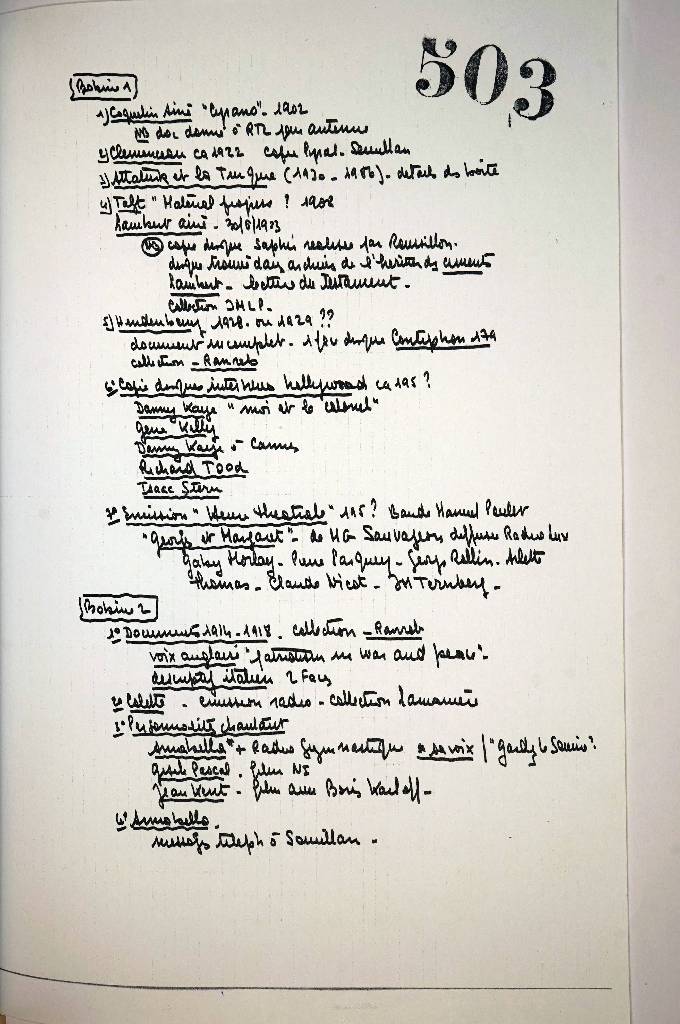 503
Bobine 1
1) Coquelin Ainé "Cyrano". 1902
NB doc donné à RTL pour antenne
2) Clemenceau ca 1922 copie Pyral. Saouillan
3) Attaturk et la Turquie (1930 - 1986). détails ds boite
4) Taft " Matérial progress ? 1908
Lambert ainé - 30/5/1903
NB copie disque Saphir réalisée par Roussillon.
disque trouvé dans archives de l'héritier des ciments
Lambert - lecture du Testament -
Collection JMLP.
5) Hendenbourg 1928. ou 1929 ??
document incomplet. 1 face disque 179
collection - Ranreb
6° Copie disques interviews hollywood ca 195 ?
Danny Kaye " moi et le colonel"
Gene Kelly
Danny Kaye à Cannes
Richard Tood
Isaac Stern
7° Emission " Heure théatrale" 195 ? Bande Manuel Poulet
"Georges et Margaret" - de MG Sauvageon diffusée Radio Lux
Gaby Morlay - Pierre Pasquey - Georges Rollin. Arlette
Thomas - Claude Nicot - -
Bobine 2
1° Documents 1914-1918. collection - Ranreb
voix anglaise "patriotism in war and peace" -
descriptif italien 2 Faces
2° Colette - emission radio - collection
3° Personnalités chantant
Annabella + Radio Gymnastique sa voix /
Gisele Pascal. film NI
Jean Kent - film avec Boris Karloff -
4° Annabella.
message téleph à Saouillan -